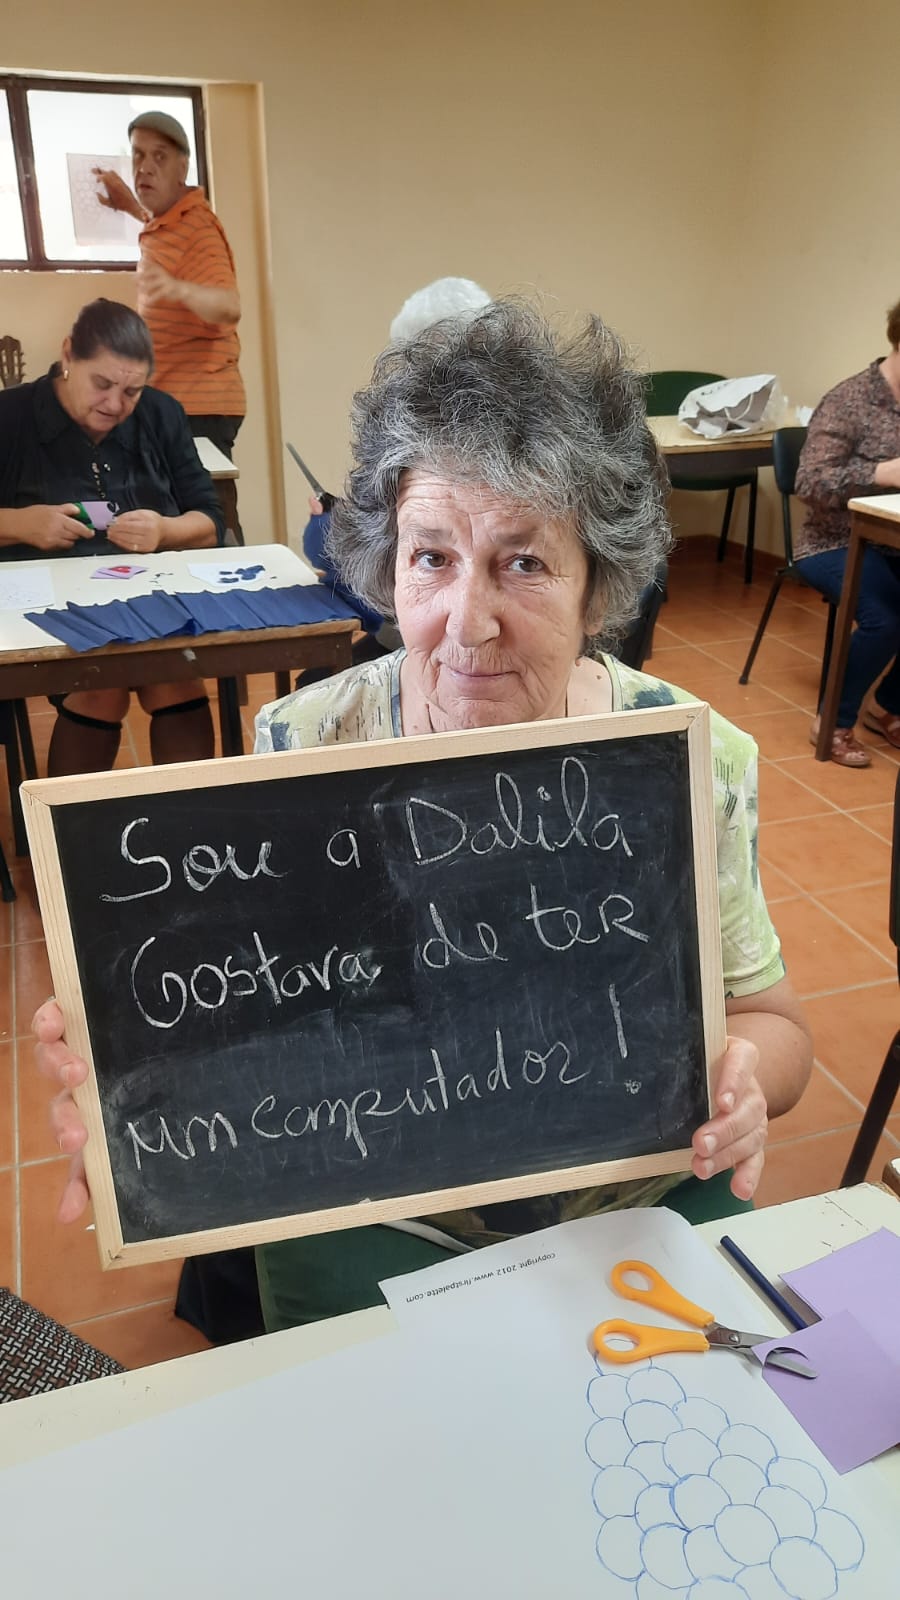 Sou a Dalila
Gostava de ter
um computador!
copyright 2012 www.firstpalette.com